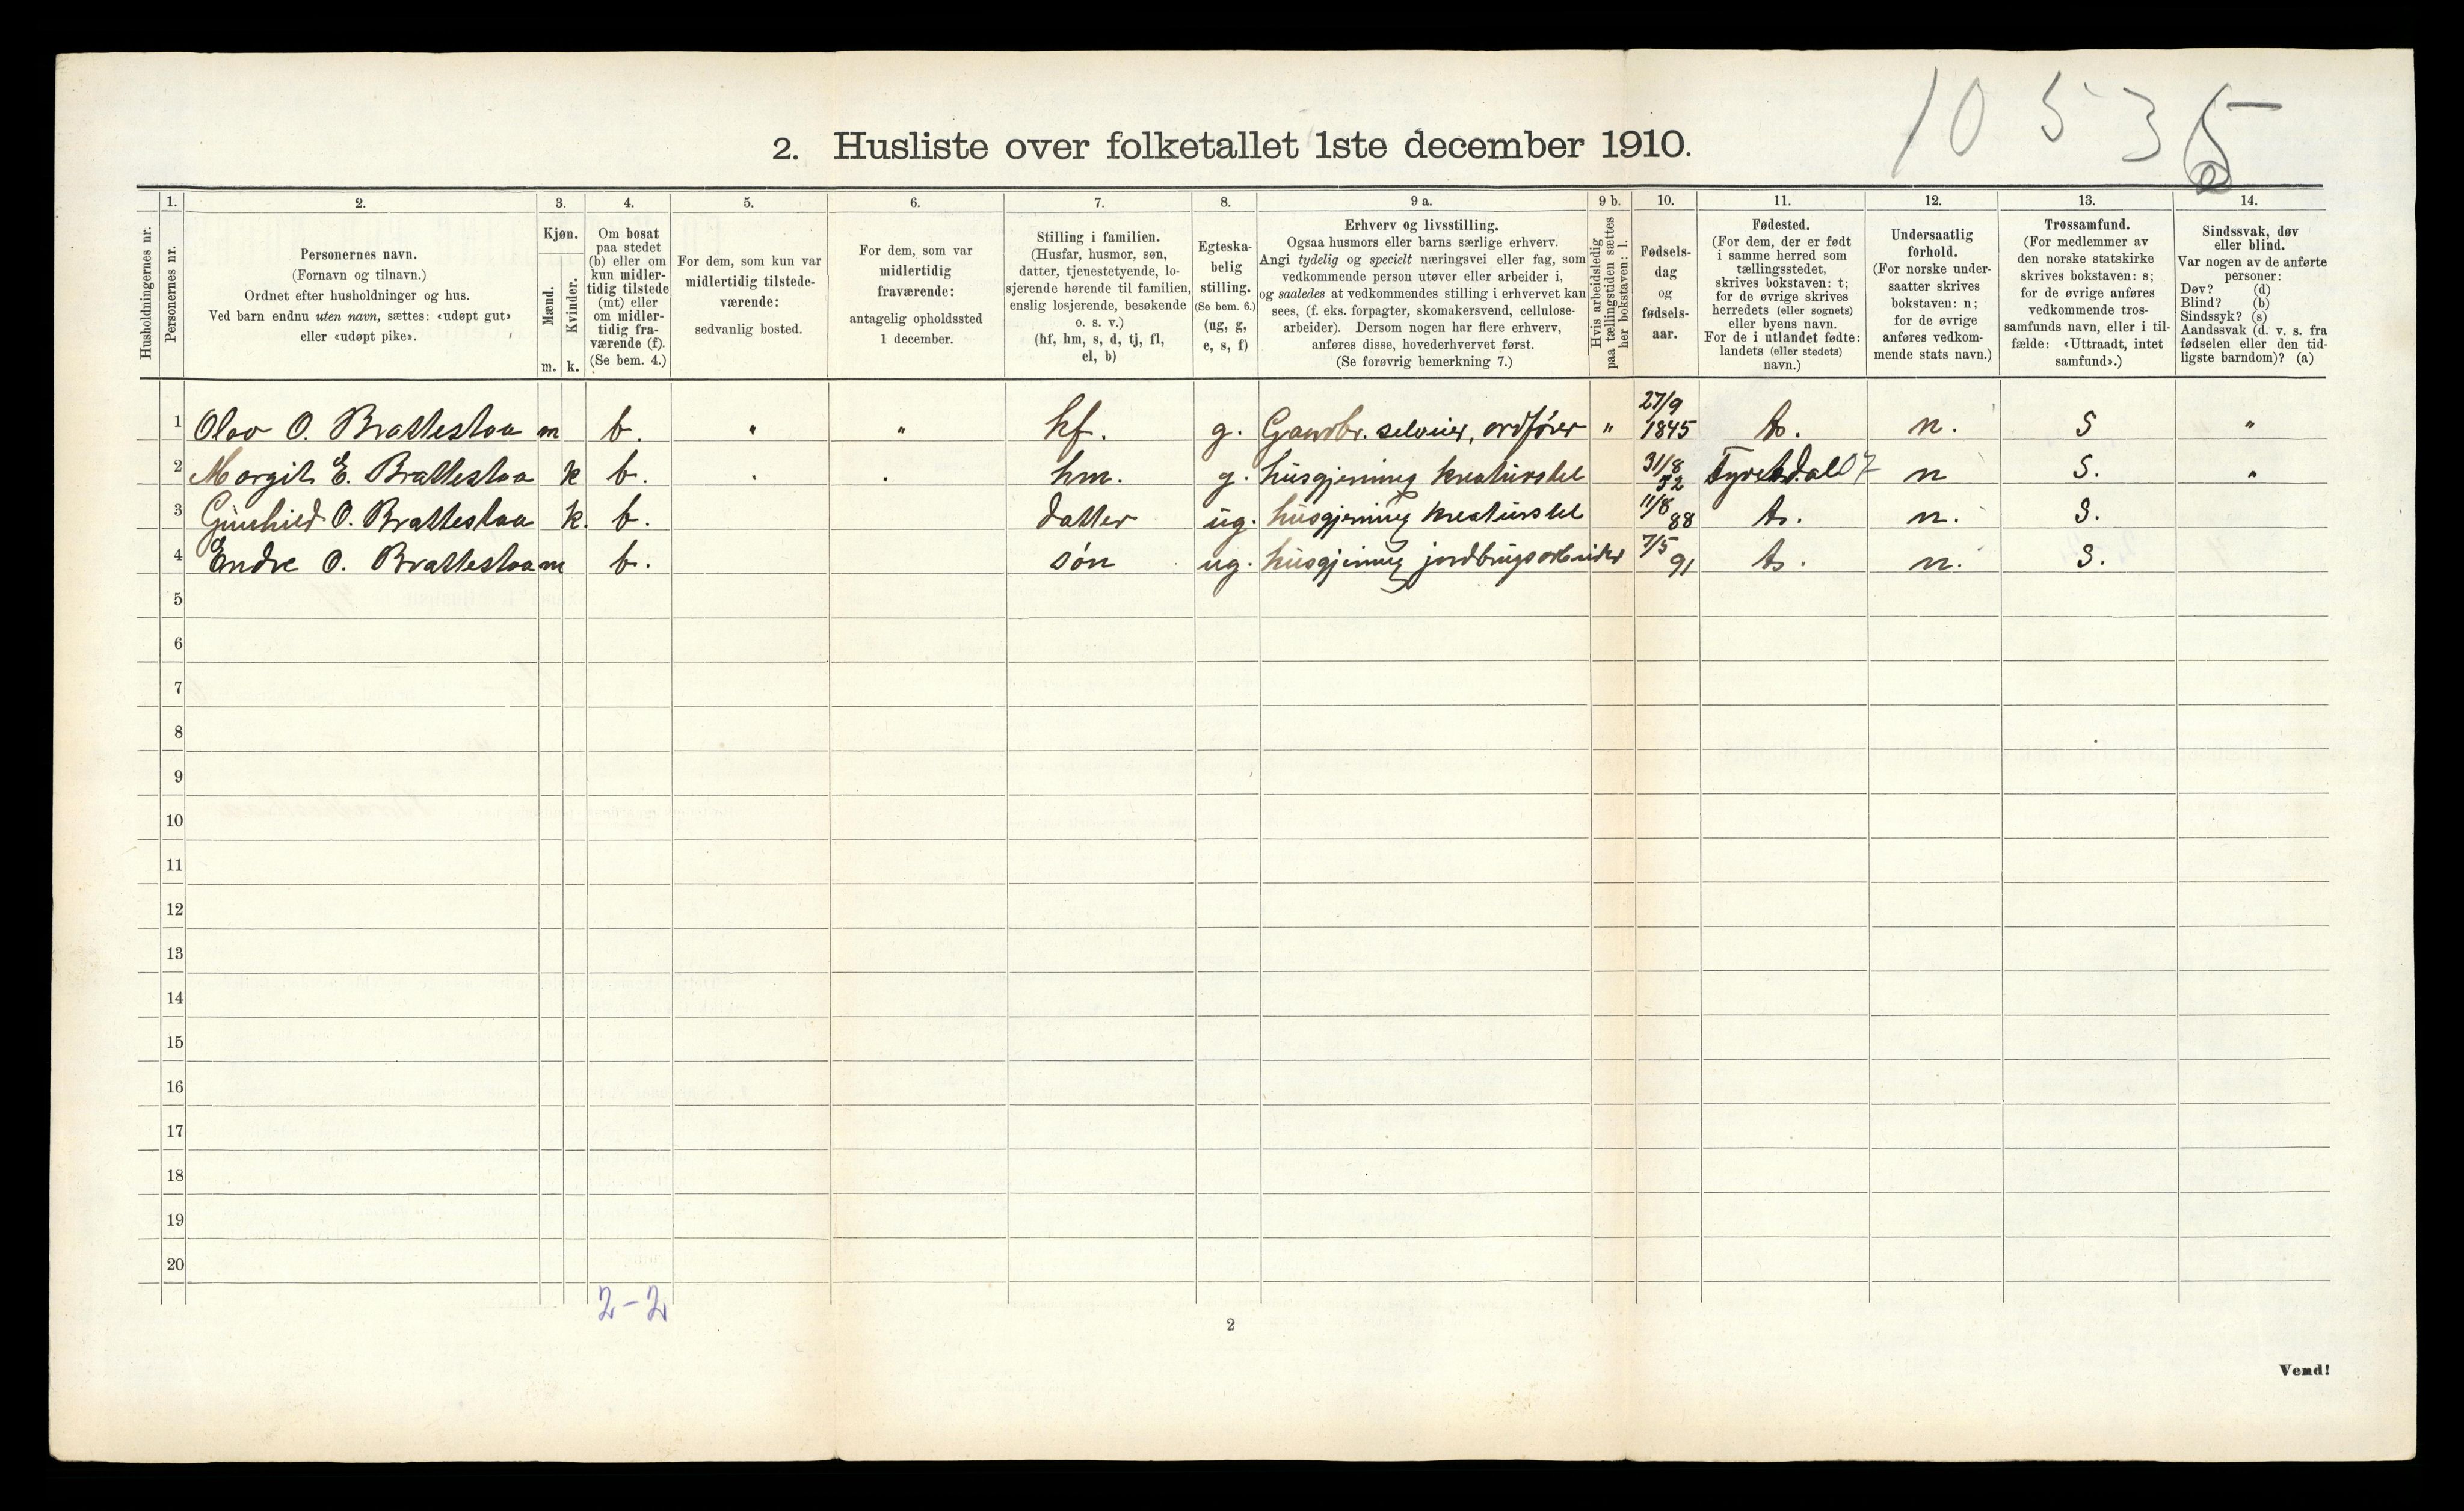 10 5 3 5
2. Husliste over folketallet 1ste december 1910.
Husholdningernes nr.
1.
Personernes nr.
2.
Personernes navn.
(Fornavn og tilnavn.)
Ordnet efter husholdninger og hus.
Ved barn endnu uten navn, sættes: «udøpt gut»
eller «udøpt pike».
3.
Kjøn.
Mænd.
Kvinder.
m. k.
4.
Om bosat
paa stedet
(b) eller om
kun midler-
tidig tilstede
(mt) eller
om midler-
tidig fra-
værende (f).
(Se bem. 4.)
5.
For dem, som kun var
midlertidig tilstede-
værende:
sedvanlig bosted.
6.
For dem, som var
midlertidig
fraværende:
antagelig opholdssted
1 december.
7.
Stilling i familien.
(Husfar, husmor, søn,
datter, tjenestetyende, lo-
sjerende hørende til familien,
enslig losjerende, besøkende
o. s. v.)
(hf, hm, s, d, tj, fl,
el, b)
8.
Egteska-
belig
stilling.
(Se bem. 6.)
(ug, g,
e, s, f)
9 a.
Erhverv og livsstilling.
Ogsaa husmors eller barns særlige erhverv.
Angi tydelig og specielt næringsvei eller fag, som
vedkommende person utøver eller arbeider i,
og saaledes at vedkommendes stilling i erhvervet kan
sees, (f. eks. forpagter, skomakersvend, cellulose-
arbeider). Dersom nogen har flere erhverv,
anføres disse, hovederhvervet først.
(Se forøvrig bemerkning 7.)
9 b.
Hvis arbeidsledig
paa tællingstiden sættes
her bokstaven: l.
10.
Fødsels-
dag
og
fødsels-
aar.
11.
Fødested.
(For dem, der er født
i samme herred som
tællingsstedet,
skrives bokstaven: t;
for de øvrige skrives
herredets (eller sognets)
eller byens navn.
For de i utlandet fødte:
landets (eller stedets)
navn.)
12.
Undersaatlig
forhold.
(For norske under-
saatter skrives
bokstaven: n;
for de øvrige
anføres vedkom-
mende stats navn.)
13.
Trossamfund.
(For medlemmer av
den norske statskirke
skrives bokstaven: s;
for de øvrige anføres
vedkommende tros-
samfunds navn, eller i til-
fælde: «Uttraadt, intet
samfund».)
14.
Sindssvak, døv
eller blind.
Var nogen av de anførte
personer:
Døv? (d)
Blind? (b)
Sindssyk? (s)
Aandssvak (d. v. s. fra
fødselen eller den tid-
ligste barndom)? (a)
1 Olav O. Brattestaa m b. " " hf. g. Gaardbr. selveier, ordfører " 27/9 1845 t. n. S "
2 Margit E. Brattestaa k b. . . hm. g. husgjerning kreaturstel 31/8 52 Tyrebdal 07 n S. "
3 Gunhild O. Brattestaa k. b. datter ug. husgjerning kreaturstel 11/8 88 t. n. S.
4 Endre O. Brattestaa m b. søn ug. husgjerning jordbrugsarbeider 7/5 91 t. n. S.
5
6
7
8
9
10
11
12
13
14
15
16
17
18
19
20
2-2
2
Vend!